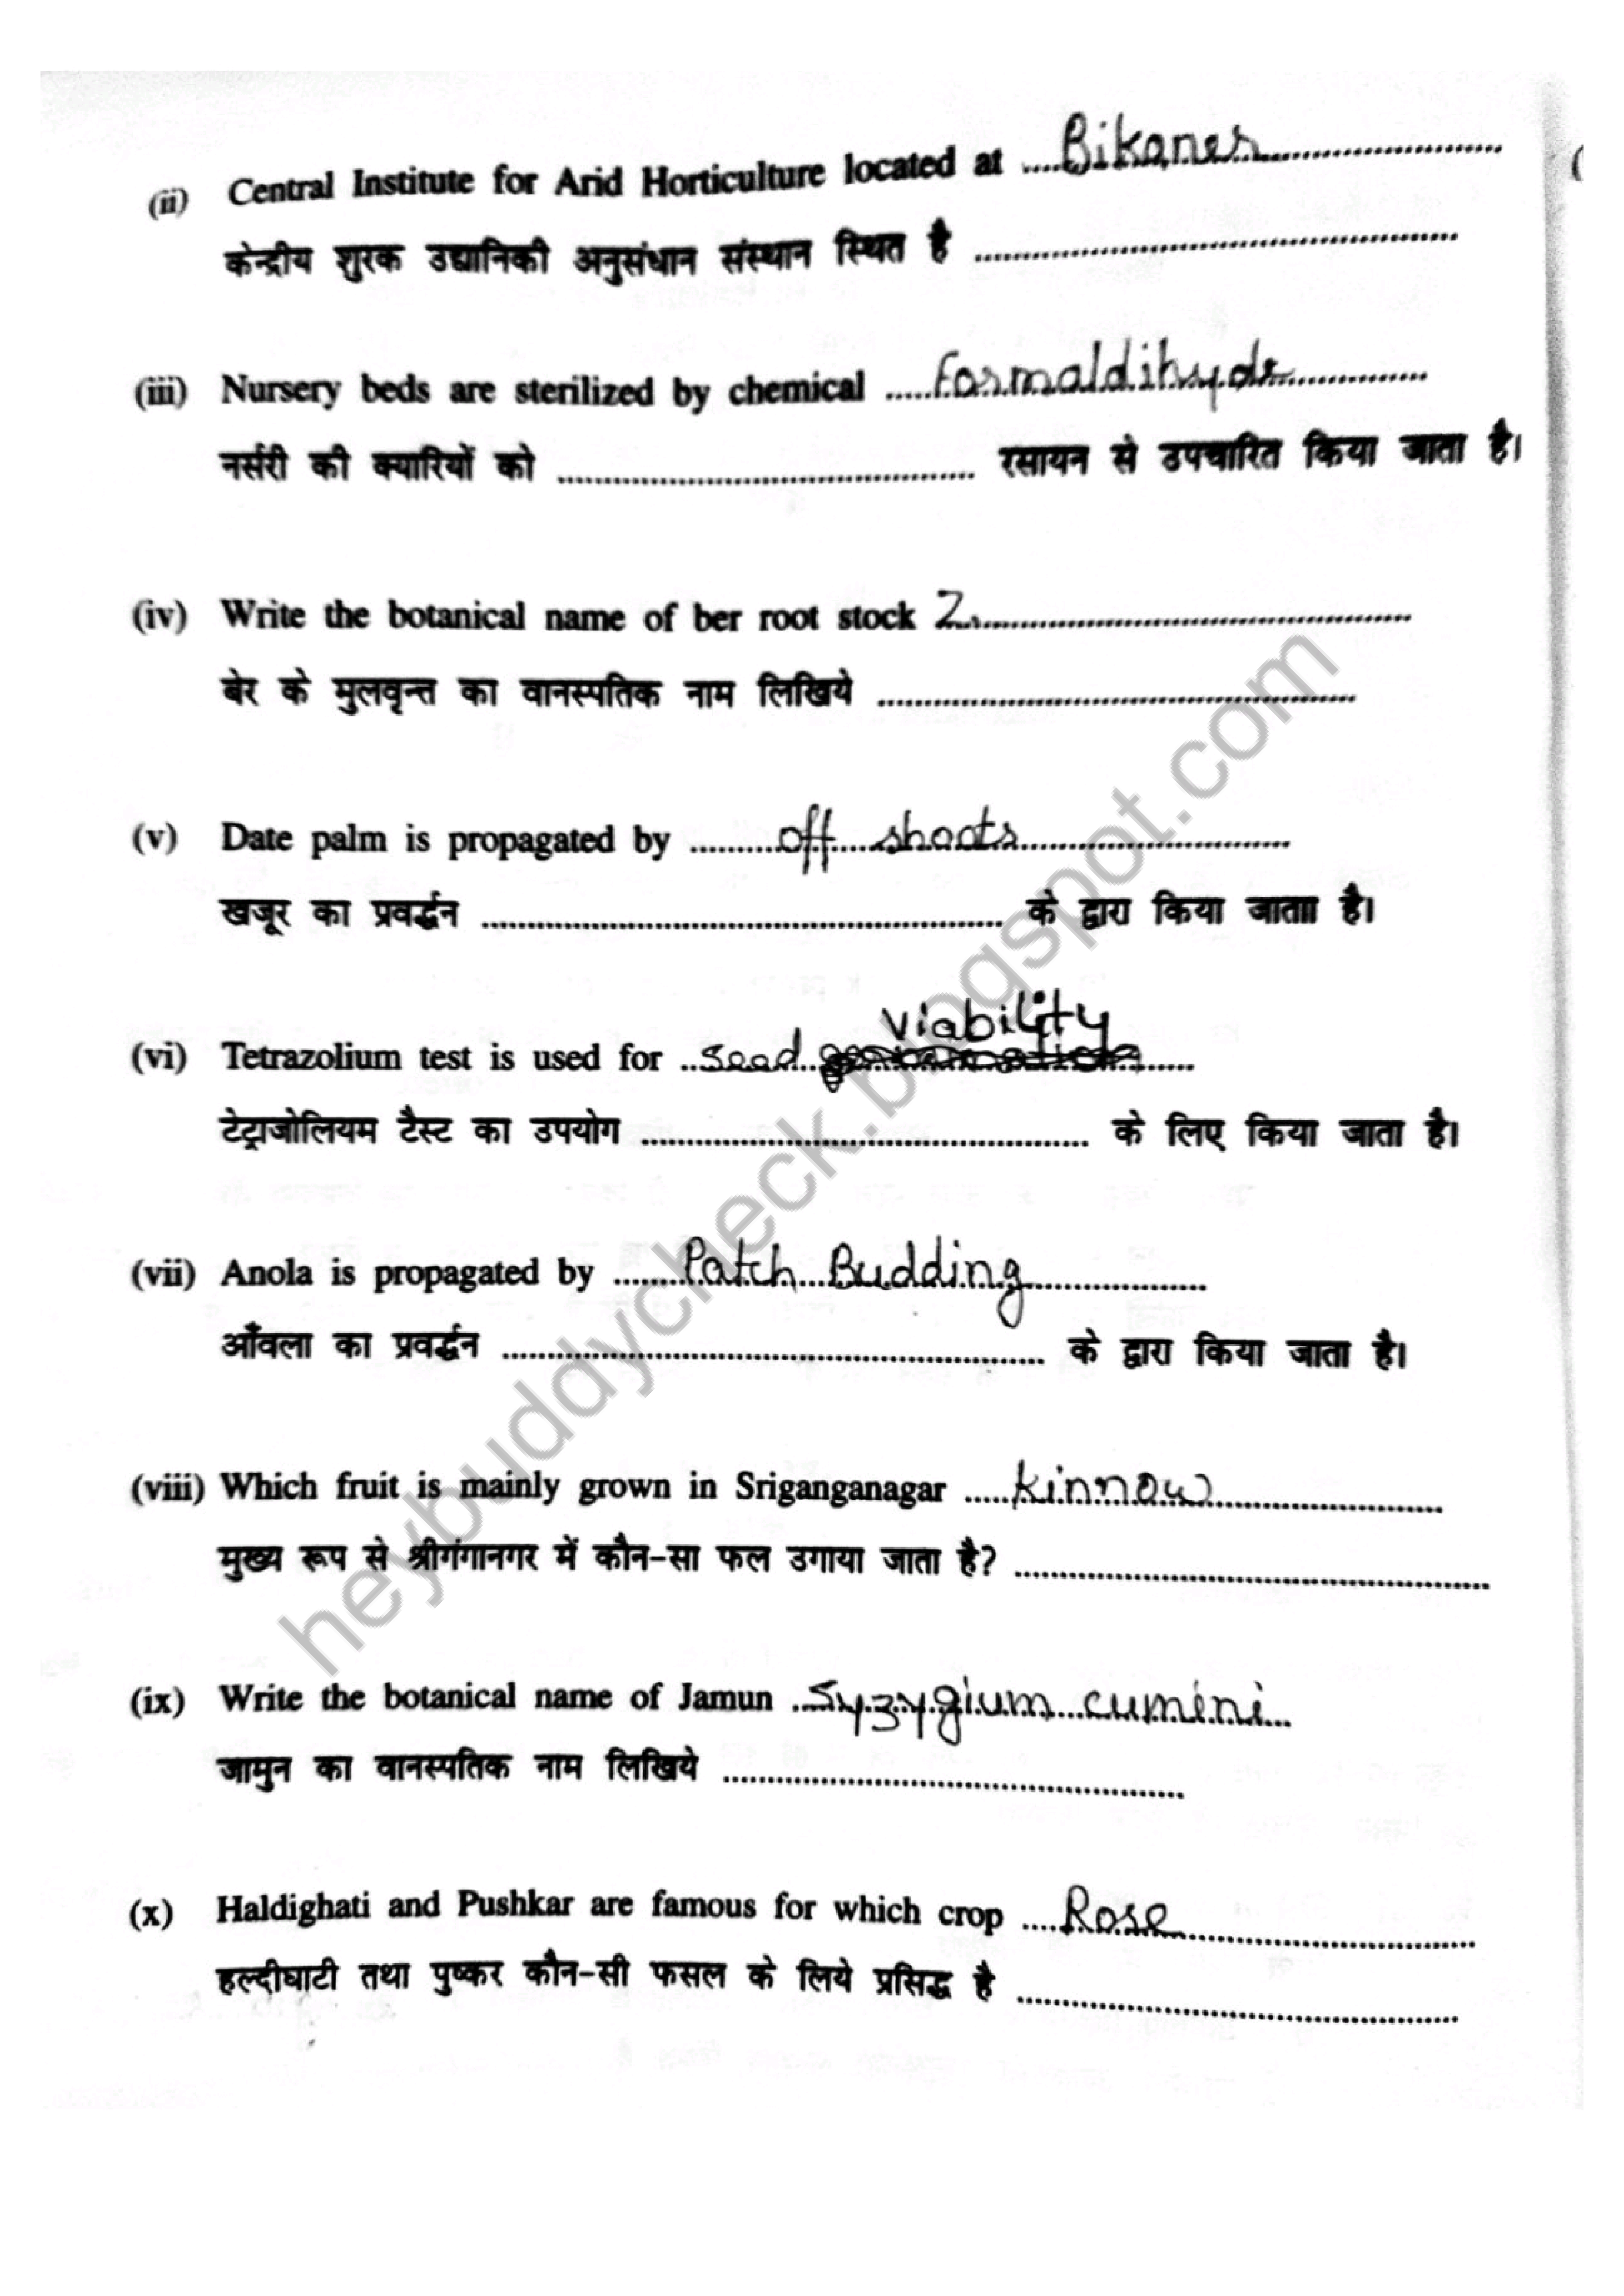 (ii) Central Institute for Arid Horticulture located at ....Bikaner....
केन्द्रीय शुरक उद्यानिकी अनुसंधान संस्थान स्थित है ....
(iii) Nursery beds are sterilized by chemical ....Formaldihyde....
नर्सरी की क्यारियों को .... रसायन से उपचारित किया जाता है।
(iv) Write the botanical name of ber root stock Z....
बेर के मुलवृन्त का वानस्पतिक नाम लिखिये ....
(v) Date palm is propagated by ....off shoots....
खजूर का प्रवर्द्धन .... के द्वारा किया जाताा है।
viability
(vi) Tetrazolium test is used for ..seed germination....
टेट्राजोलियम टैस्ट का उपयोग .... के लिए किया जाता है।
(vii) Anola is propagated by ....Patch Budding....
आँवला का प्रवर्द्धन .... के द्वारा किया जाता है।
(viii) Which fruit is mainly grown in Sriganganagar ....kinnow....
मुख्य रूप से श्रीगंगानगर में कौन-सा फल उगाया जाता है? ....
(ix) Write the botanical name of Jamun ..Syzygium cumini...
जामुन का वानस्पतिक नाम लिखिये ....
(x) Haldighati and Pushkar are famous for which crop ....Rose....
हल्दीघाटी तथा पुष्कर कौन-सी फसल के लिये प्रसिद्ध है ....
heybuddycheck.blogspot.com